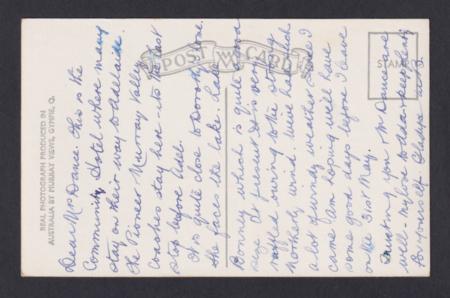 POST CARD
STAMP
REAL PHOTOGRAPH PRODUCED IN
AUSTRALIA BY MURRAY VIEWS, GYMPIE, Q.
Dear Mrs Dance. This is the
Community Hotel where many
stay on their way to Adelaide.
the Pioneer Murray Valley
Coaches stay here - its the last
stop before Adel.
It's quite close to Dorothy's home.
the faces the lake. Lake
Bonney which is quite a
size. At present it is very
ruffled owing to the strong
Northerly wind. We've had
a lot of windy weather since I
came. Am hoping we'll have
some good days before I leave
on the 31st May.
Trusting you & Mr Dance are
well - My love to dear
for yourself Gladys